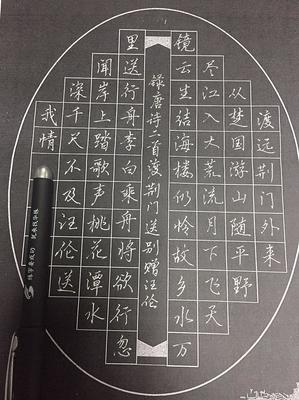 渡远荆门外来
从楚国游山随平野
尽江入大荒流月下飞天
镜云生结海楼仍怜故乡水万
録唐诗二首渡荆门送别赠汪伦
里送行舟李白乘舟将欲行忽
闻岸上踏歌声桃花潭水
深千尺不及汪伦送
我情